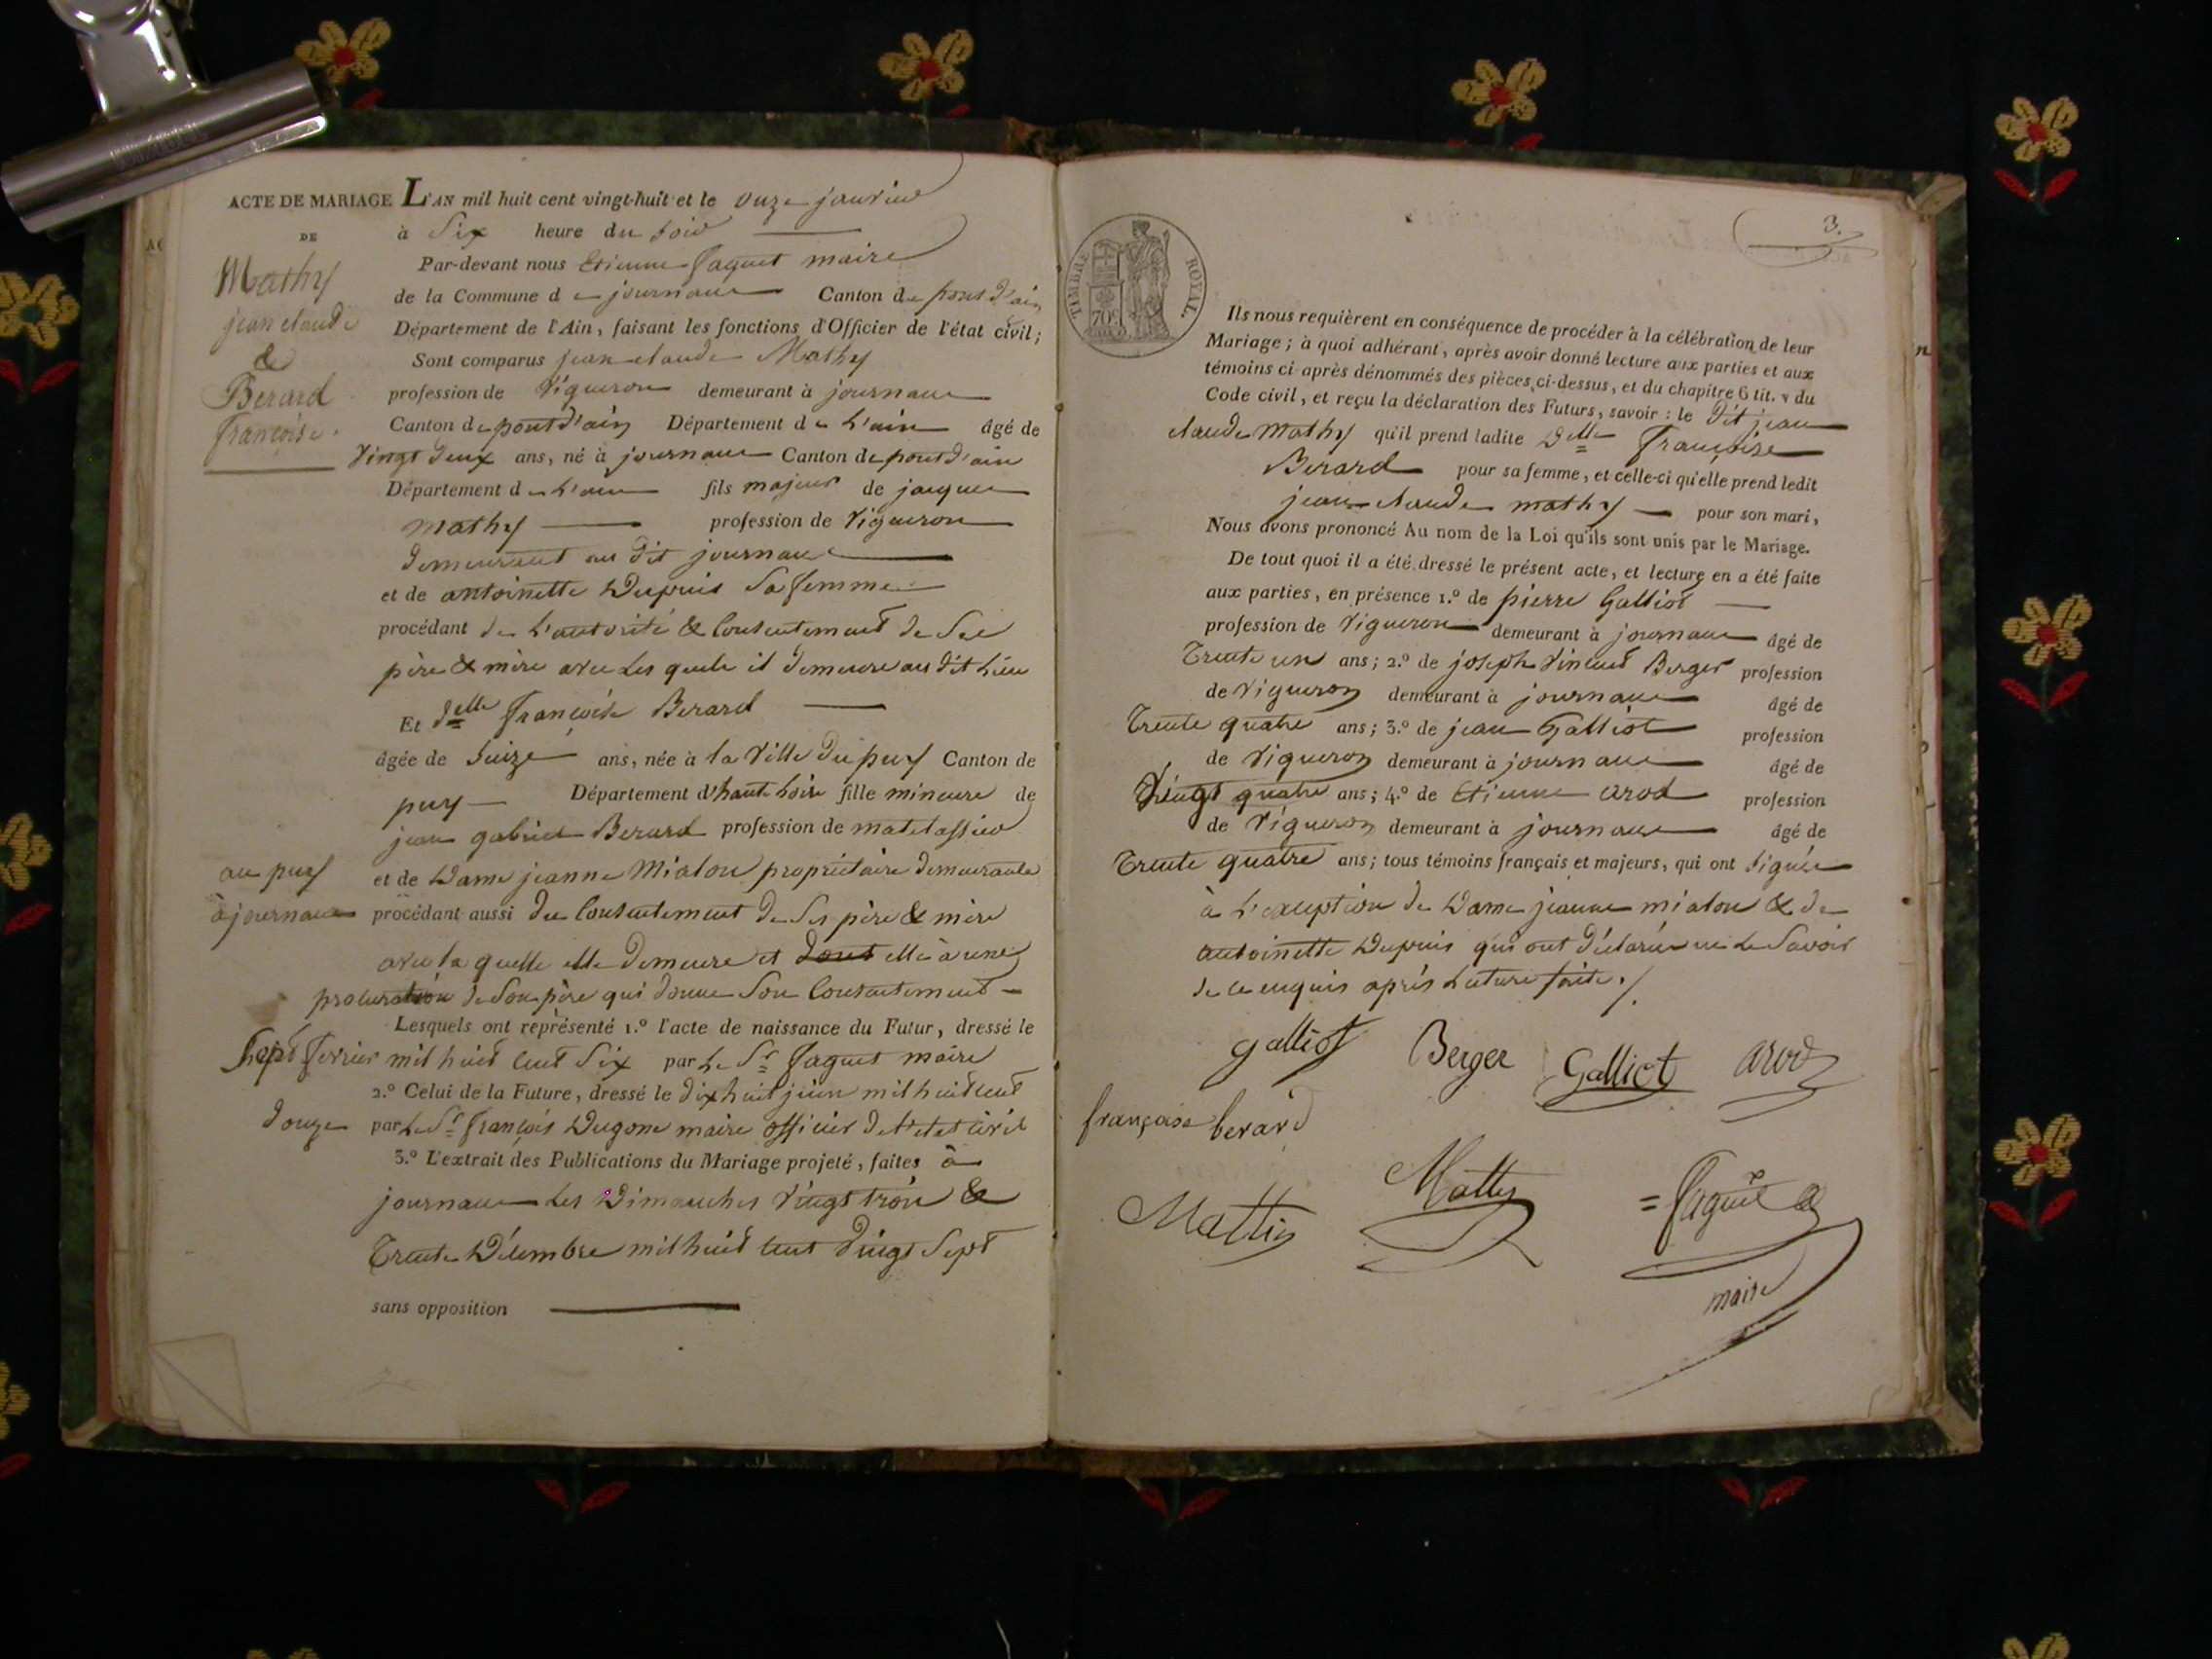 ACTE DE MARIAGE
DE
Mathy
jean claude
&
Berard
françoise.
L'AN mil huit cent vingt-huit et le onze janvier
à Six heure du soir
Par-devant nous Etienne Faguet maire
de la Commune de journans Canton de pont d'ain
Département de l'Ain, faisant les fonctions d'Officier de l'état civil;
Sont comparus jean claude Mathy
profession de Vigneron demeurant à journans
Canton de pont d'ain Département de L'ain âgé de
Vingt deux ans, né à journans Canton de pont d'ain
Département de L'ain fils majeur de jacques
mathy profession de Vigneron
demeurant au dit journans
et de antoinette Dupuis Sa femme
procédant de L'autorité & Consentement de Ses
père & mère avec Les quels il demeure au dit Lieu
Et delle françoise Berard
âgée de Seize ans, née à la Ville du puy Canton de
puy Département d'haute Loire fille mineure de
jean gabriel Berard profession de matelassier
au puy et de Dame jeanne Mialon propriétaire demeurante
à journans procédant aussi du Consentement de Ses père & mère
avec la quelle elle demeure et dont elle à une
procuration de Son père qui donne Son Consentement
Lesquels ont représenté 1.º l'acte de naissance du Futur, dressé le
Sept fevrier mil huit Cent Six par Le Sr Faguet maire
2.º Celui de la Future, dressé le dix huit juin mil huit Cent
douze par Le Sr François Dugone maire officier de L'etat Civil
3.º L'extrait des Publications du Mariage projeté, faites à
journans Les Dimanches Vingt trois &
Trente Décembre mil huit Cent Vingt Sept
sans opposition
3.
TIMBRE ROYAL.
70c
Ils nous requièrent en conséquence de procéder à la célébration de leur
Mariage; à quoi adhérant, après avoir donné lecture aux parties et aux
témoins ci-après dénommés des pièces ci-dessus, et du chapitre 6 tit. v du
Code civil, et reçu la déclaration des Futurs, savoir: le dit jean
claude mathy qu'il prend ladite Delle Françoise
Berard pour sa femme, et celle-ci qu'elle prend ledit
jean claude mathy pour son mari,
Nous avons prononcé Au nom de la Loi qu'ils sont unis par le Mariage.
De tout quoi il a été dressé le présent acte, et lecture en a été faite
aux parties, en présence 1.º de pierre Galliot
profession de Vigneron demeurant à journans âgé de
Trente un ans; 2.º de joseph Vincent Berger profession
de Vigneron demeurant à journans âgé de
Trente quatre ans; 3.º de jean Galliot profession
de Vigneron demeurant à journans âgé de
Vingt quatre ans; 4.º de Etienne arod profession
de Vigneron demeurant à journans âgé de
Trente quatre ans; tous témoins français et majeurs, qui ont Signés
à L'exception de Dame jeanne mialon & de
antoinette Dupuis qui ont déclarés ne Le Savoir
de ce enquis après Lecture faite./.
galliot Berger Galliot arod
françoise berard
Matty
Mathy
= Faguet
maire